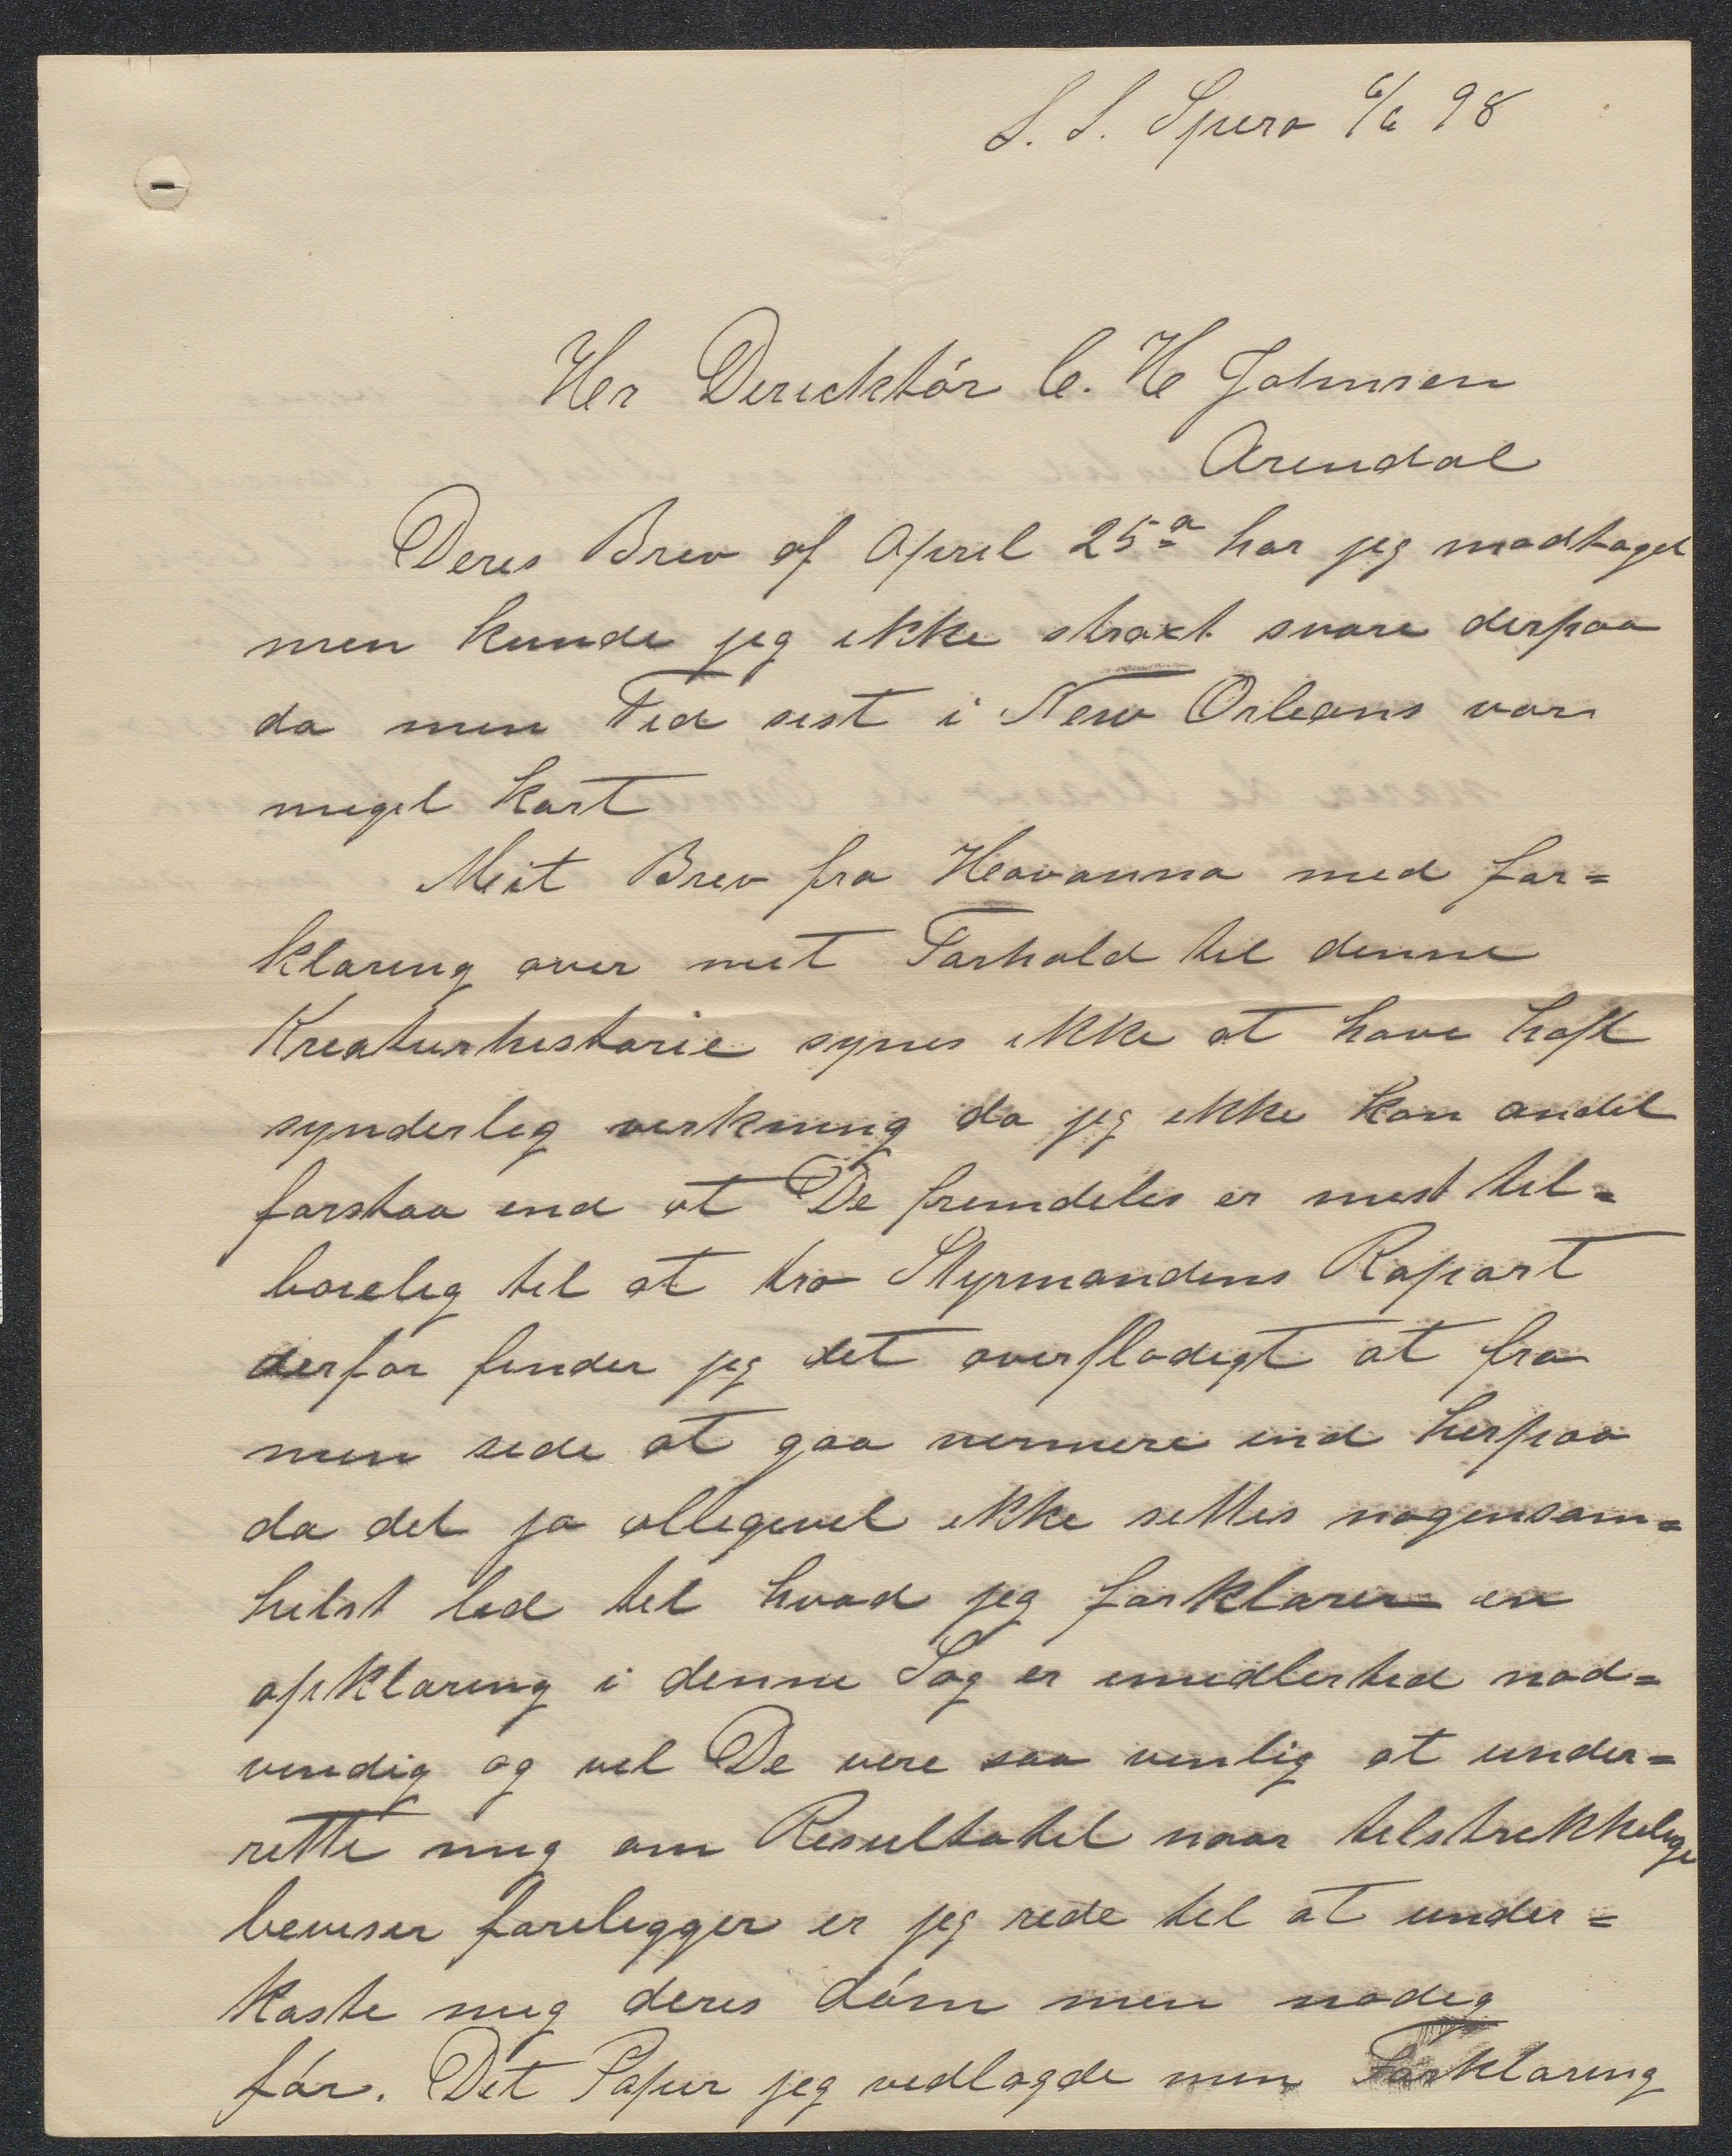 S. S. Spero 6/6 98
Her Direcktór C. H Johnsen
Arendal
Deres Brev af April 25a har jeg modtaget
men kunde jeg ikke strakt svare derpaa
da min Tid sist i New Orleans var
meget kort
Mit Brev fra Havanna med for=
klaring over mit Forhold til denne
Kreaturhistorie synes ikke at have haft
synderlig virkning da jeg ikke kan andet
forstaa end at De fremdeles er mest til=
boielig til at tro Styrmandens Raport
derfor finder jeg det overflodigt at fra
min side at gaa nermere ind herpaa
da det jo alligevel ikke settes nogensom=
helst lid til hvad jeg forklarer en
opklaring i denne Sag er imidlertid nod=
vendig og vil De vere saa venlig at under=
rette mig om Resultatet naar tilstrekkelige
beviser foreligger er jeg rede til at under=
kaste mig deres dóm men nodig
fór. Det Papir jeg vedlagde min Forklaring